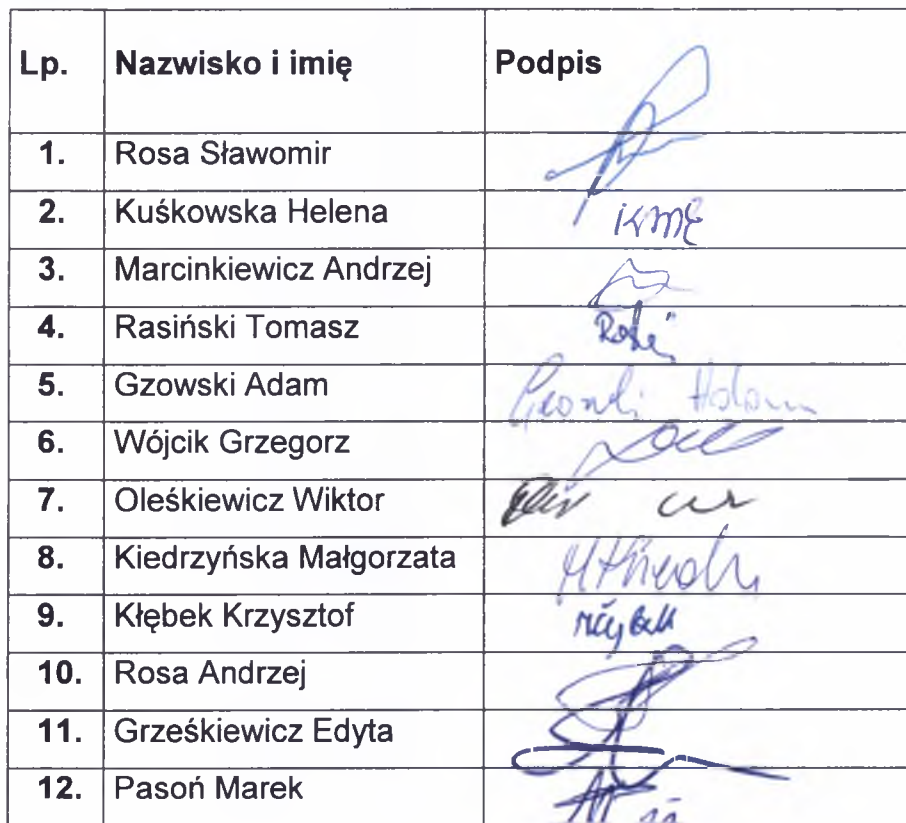 Lp. Nazwisko i imię Podpis
1. Rosa Sławomir
2. Kuśkowska Helena
3. Marcinkiewicz Andrzej
4. Rasiński Tomasz
5. Gzowski Adam
6. Wójcik Grzegorz
7. Oleśkiewicz Wiktor
8. Kiedrzyńska Małgorzata
9. Kłębek Krzysztof
10. Rosa Andrzej
11. Grześkiewicz Edyta
12. Pasoń Marek